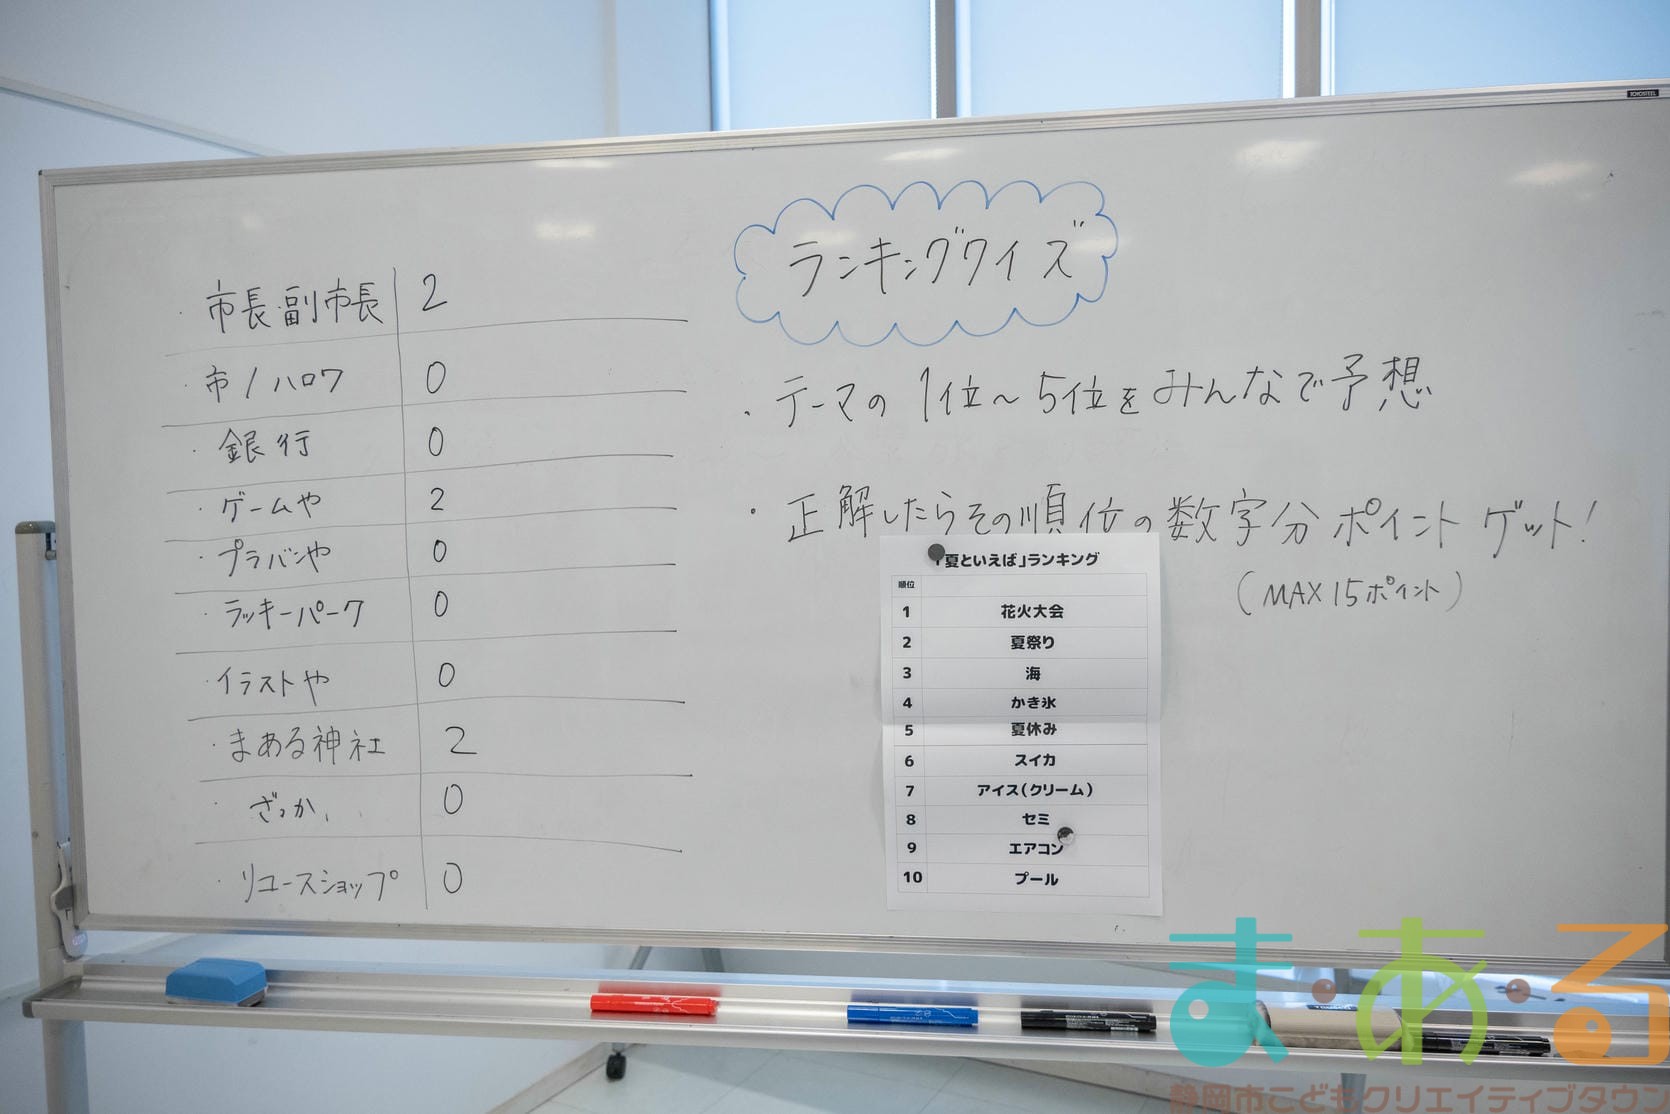 TOYOSTEEL
・市長・副市長 2
・市/ハロワ 0
・銀行 0
・ゲームや 2
・プラバンや 0
・ラッキーパーク 0
・イラストや 0
・まある神社 2
・ざっか 0
・リユースショップ 0
ランキングクイズ
・テーマの1位～5位をみんなで予想
・正解したらその順位の数字分ポイントゲット!
(MAX15ポイント)
「夏といえば」ランキング
順位
1 花火大会
2 夏祭り
3 海
4 かき氷
5 夏休み
6 スイカ
7 アイス(クリーム)
8 セミ
9 エアコン
10 プール
ま・あ・る
静岡市こどもクリエイティブタウン